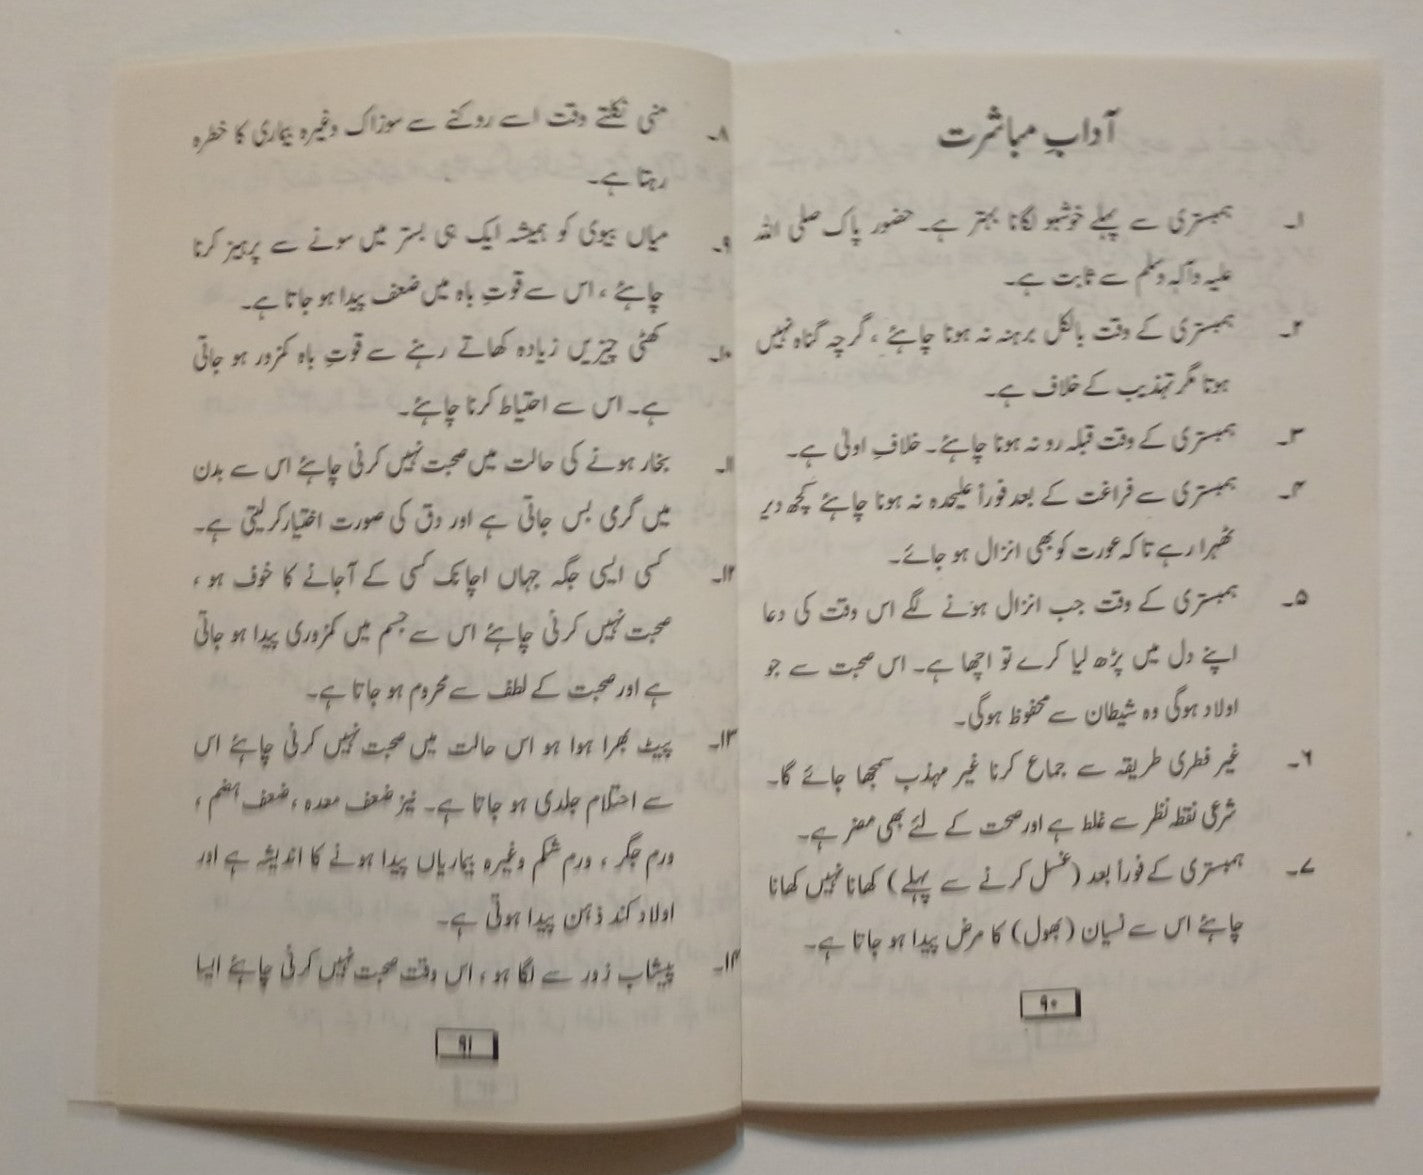 آدابِ مباشرت
۱۔ ہمبستری سے پہلے خوشبو لگانا بہتر ہے۔ حضور پاک صلی اللہ
علیہ وآلہ وسلم سے ثابت ہے۔
۲۔ ہمبستری کے وقت بالکل برہنہ نہ ہونا چاہئے، گرچہ گناہ نہیں
ہوتا مگر تہذیب کے خلاف ہے۔
۳۔ ہمبستری کے وقت قبلہ رو نہ ہونا چاہئے۔ خلافِ اولیٰ ہے۔
۴۔ ہمبستری سے فراغت کے بعد فوراً علیحدہ نہ ہونا چاہئے کچھ دیر
ٹھہرا رہے تاکہ عورت کو بھی انزال ہو جائے۔
۵۔ ہمبستری کے وقت جب انزال ہونے لگے اس وقت کی دعا
اپنے دل میں پڑھ لیا کرے تو اچھا ہے۔ اس صحبت سے جو
اولاد ہوگی وہ شیطان سے محفوظ ہوگی۔
۶۔ غیر فطری طریقہ سے جماع کرنا غیر مہذب سمجھا جائے گا۔
شرعی نقطہ نظر سے غلط ہے اور صحت کے لئے بھی مضر ہے۔
۷۔ ہمبستری کے فوراً بعد (غسل کرنے سے پہلے) کھانا نہیں کھانا
چاہئے اس سے نسیان (بھول) کا مرض پیدا ہو جاتا ہے۔
۹۰
۸۔ منی نکلتے وقت اسے روکنے سے سوزاک وغیرہ بیماری کا خطرہ
رہتا ہے۔
۹۔ میاں بیوی کو ہمیشہ ایک ہی بستر میں سونے سے پرہیز کرنا
چاہئے، اس سے قوتِ باہ میں ضعف پیدا ہو جاتا ہے۔
۱۰۔ کھٹی چیزیں زیادہ کھاتے رہنے سے قوتِ باہ کمزور ہو جاتی
ہے۔ اس سے احتیاط کرنا چاہئے۔
۱۱۔ بخار ہونے کی حالت میں صحبت نہیں کرنی چاہئے اس سے بدن
میں گرمی بس جاتی ہے اور دق کی صورت اختیار کر لیتی ہے۔
۱۲۔ کسی ایسی جگہ جہاں اچانک کسی کے آجانے کا خوف ہو،
صحبت نہیں کرنی چاہئے اس سے جسم میں کمزوری پیدا ہو جاتی
ہے اور صحبت کے لطف سے محروم ہو جاتا ہے۔
۱۳۔ پیٹ بھرا ہوا ہو اس حالت میں صحبت نہیں کرنی چاہئے اس
سے احتلام جلدی ہو جاتا ہے۔ نیز ضعف معدہ، ضعف ہضم،
ورم جگر، ورم شکم وغیرہ بیماریاں پیدا ہونے کا اندیشہ ہے اور
اولاد کند ذہن پیدا ہوتی ہے۔
۱۴۔ پیشاب زور سے لگا ہو، اس وقت صحبت نہیں کرنی چاہئے ایسا
۹۱